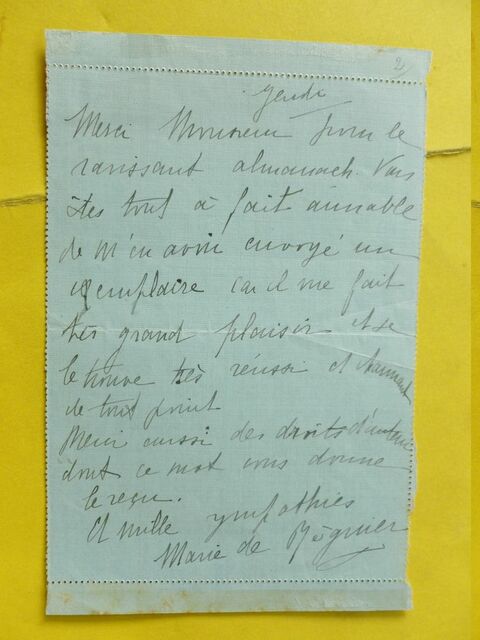 2
Jeudi
Merci Monsieur pour le
ravissant almanach. Vous
êtes tout à fait aimable
de m'en avoir envoyé un
exemplaire car il me fait
très grand plaisir et je
le trouve très réussi et charmant
de tout point
Merci aussi des droits d'auteur
dont ce mot vous donne
le reçu.
Et mille sympathies
Marie de Régnier